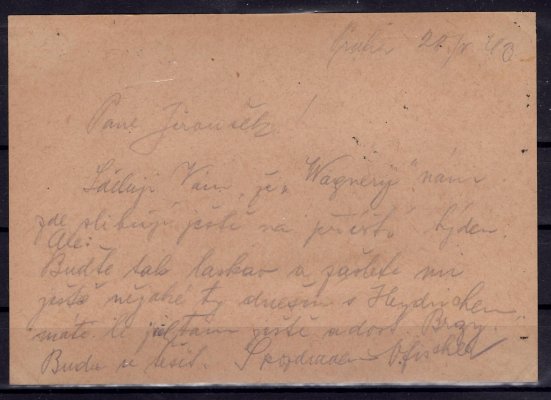 Praha 21/V 43
Pane Jiroušek!
Sděluji Vám, že „Wagnery" nám
zde slibují ještě na příští týden.
Ale:
Buďte tak laskav a zašlete mi
ještě nějaké ty dnešní s Heydrichem
máte-li jich tam ještě dost. Brzy.
Budu se těšit. S pozdravem